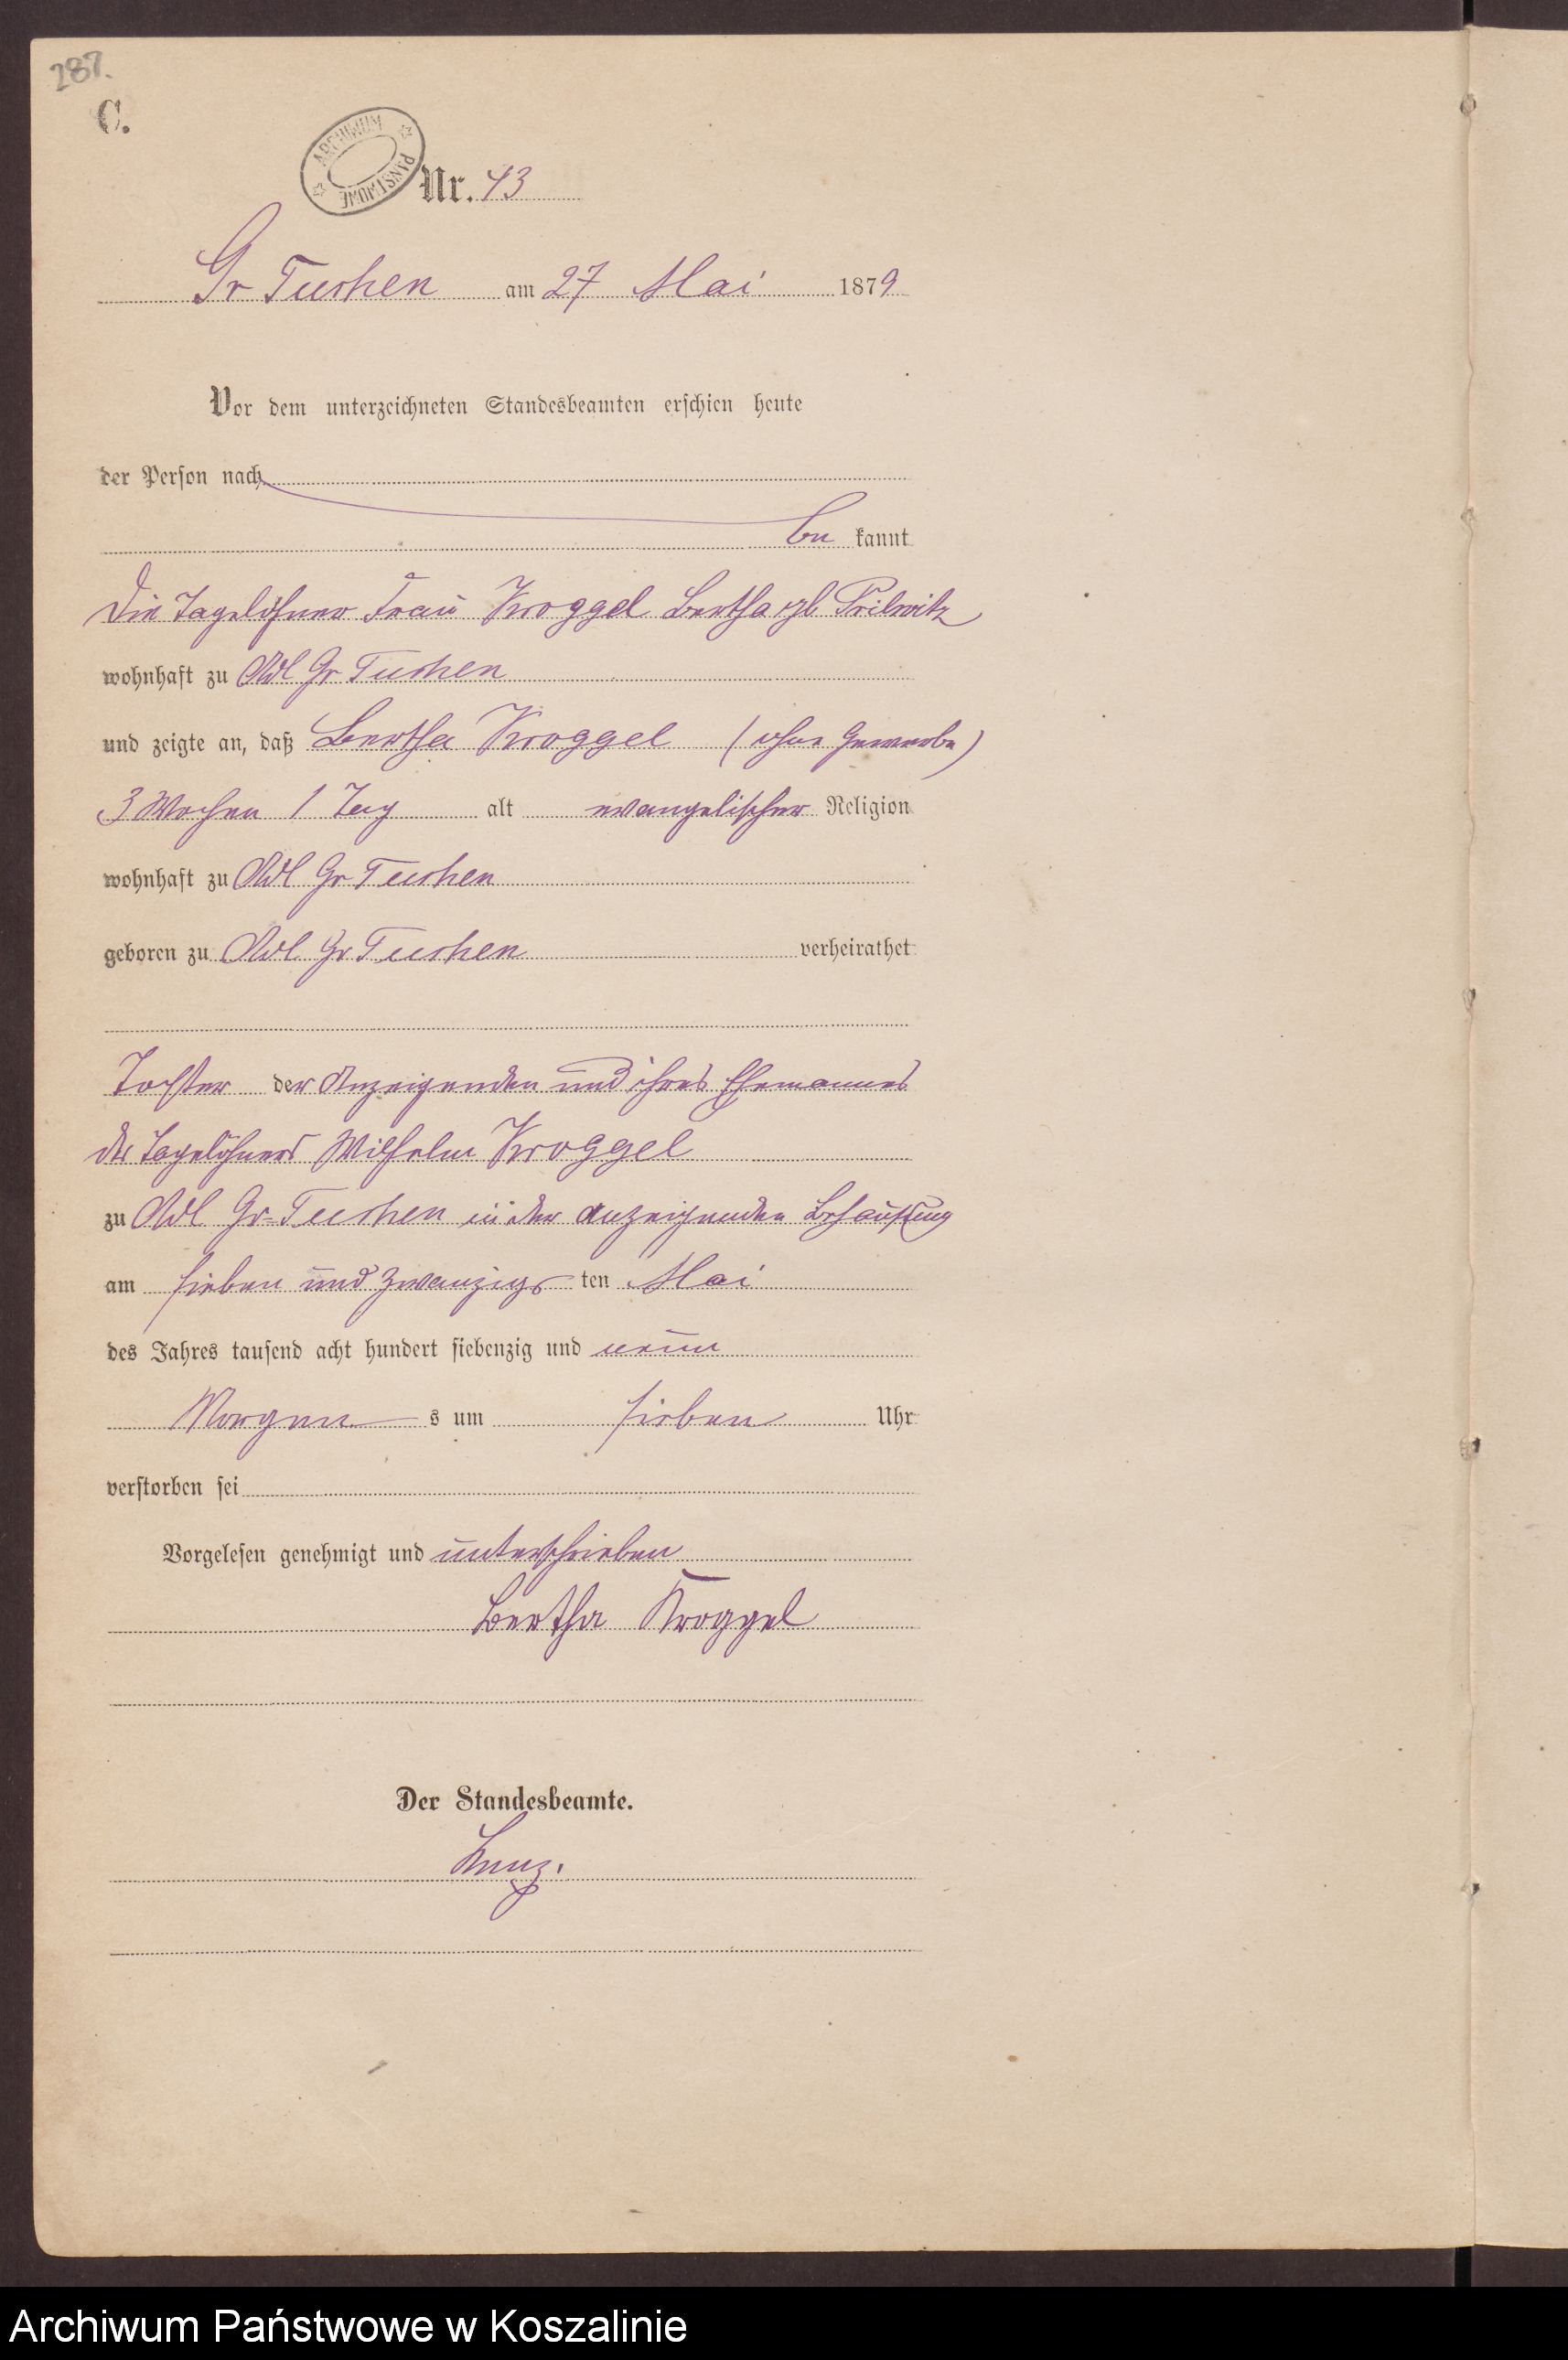 287.
C.
ARCHIWUM PAŃSTWOWE
Nr. 43
Gr Tuchen am 27 Mai 1879
Vor dem unterzeichneten Standesbeamten erschien heute
der Person nach
be kannt
die Tagelöhner Frau Kroggel Bertha gb Prilwitz
wohnhaft zu Adl Gr Tuchen
und zeigte an, daß Bertha Kroggel (ohne Gewerbe)
3 Wochen 1 Tag alt evangelischer Religion
wohnhaft zu Adl Gr Tuchen
geboren zu Adl Gr Tuchen verheirathet
Tochter der Anzeigenden und ihres Ehemannes
des Tagelöhners Wilhelm Kroggel
zu Adl Gr-Tuchen in der anzeigenden Behausung
am sieben und zwanzigs ten Mai
des Jahres tausend acht hundert siebenzig und neun
Morgen s um sieben Uhr
verstorben sei
Vorgelesen genehmigt und unterschrieben
Bertha Kroggel
Der Standesbeamte.
Archiwum Państwowe w Koszalinie